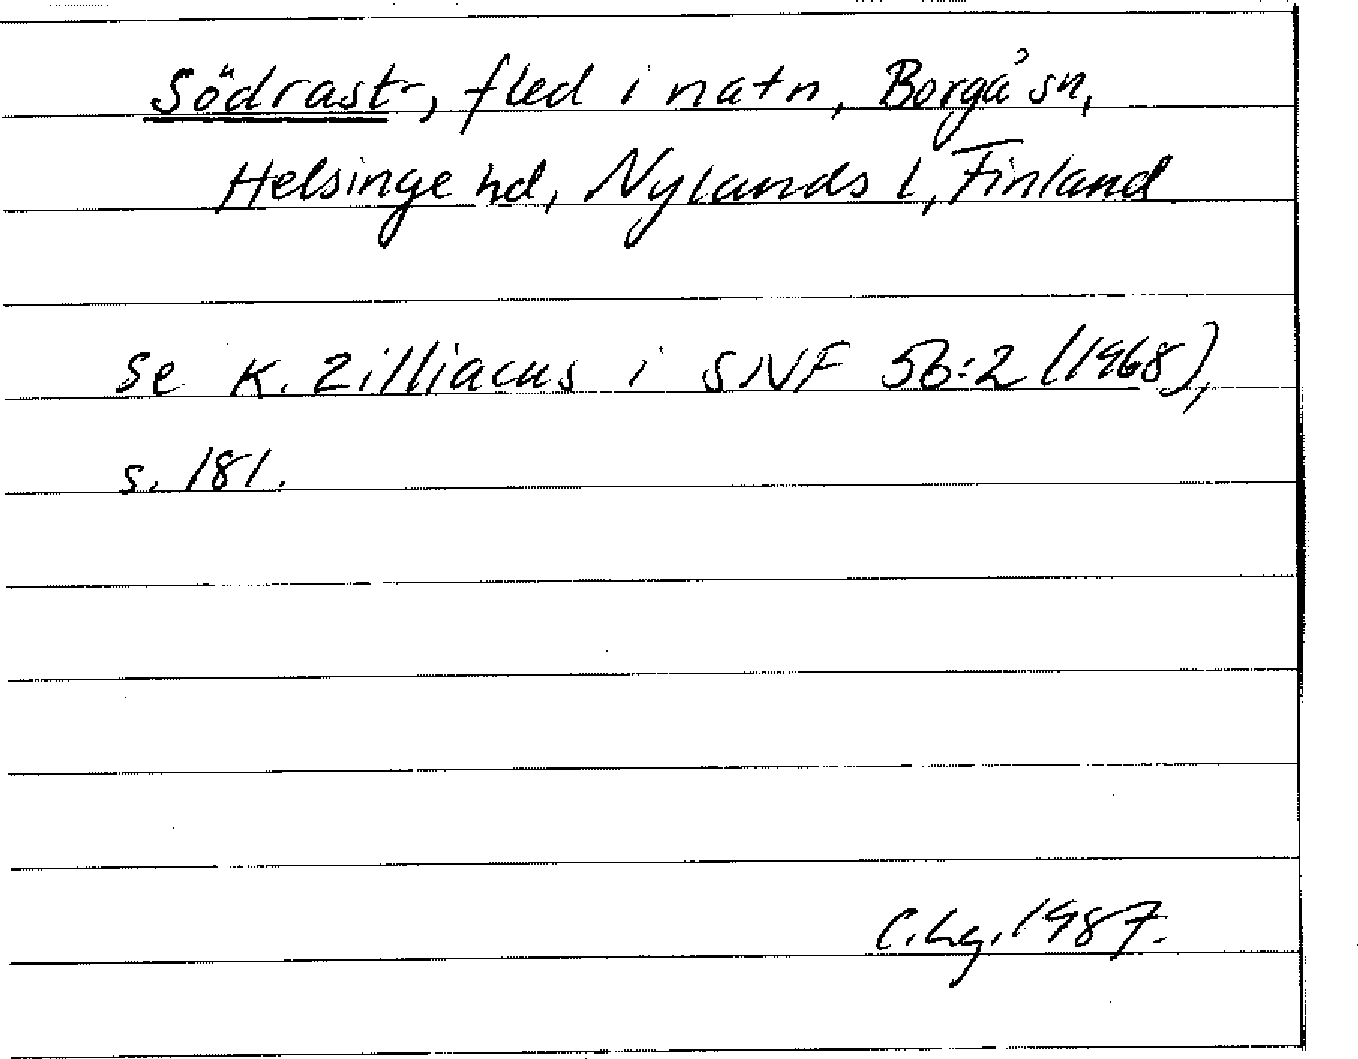 Södrast-, fled i natn, Borgå sn,
Helsinge hd, Nylands l, Finland
Se K. Zilliacus i SNF 56:2 (1968),
s. 181.
C.Lg. 1987.